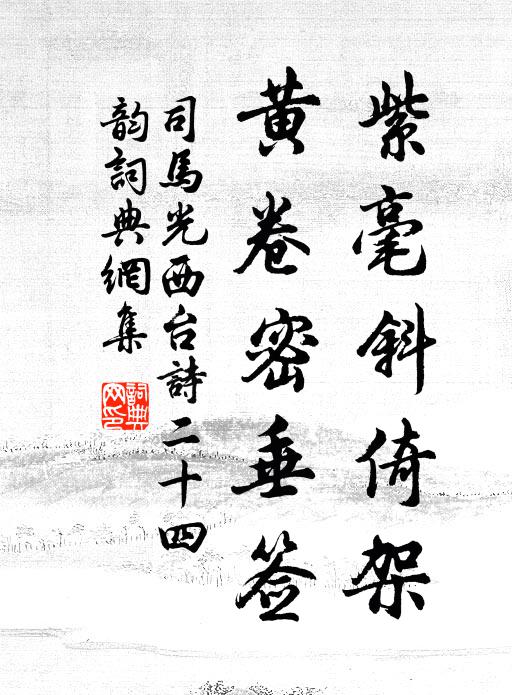 紫毫斜倚架
黄卷密垂签
司馬光西台詩二十四
韵詞典網集
詞典网印